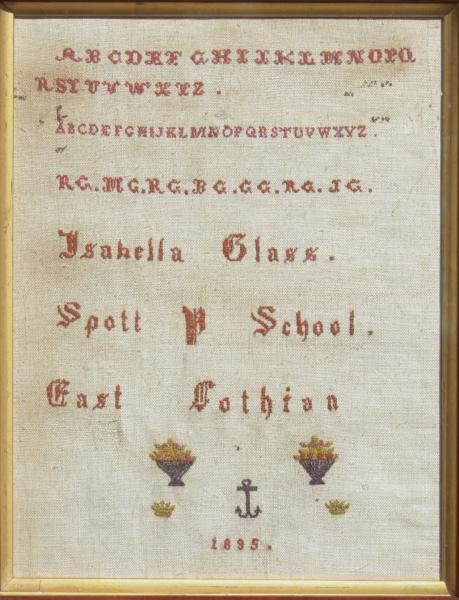 ABCDEFGHIJKLMNOPQ
RSTUVWXYZ.
ABCDEFGHIJKLMNOPQRSTUVWXYZ.
RG. MG. RG. BG. GG. RG. IG.
Isabella Glass.
Spott P School.
East Lothian
1895.